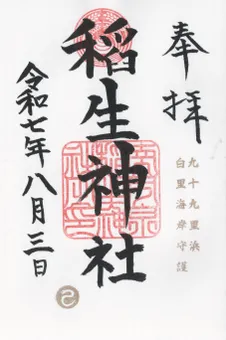 奉拝
九十九里浜
白里海岸守護
稲生神社
令和七年八月三日
己